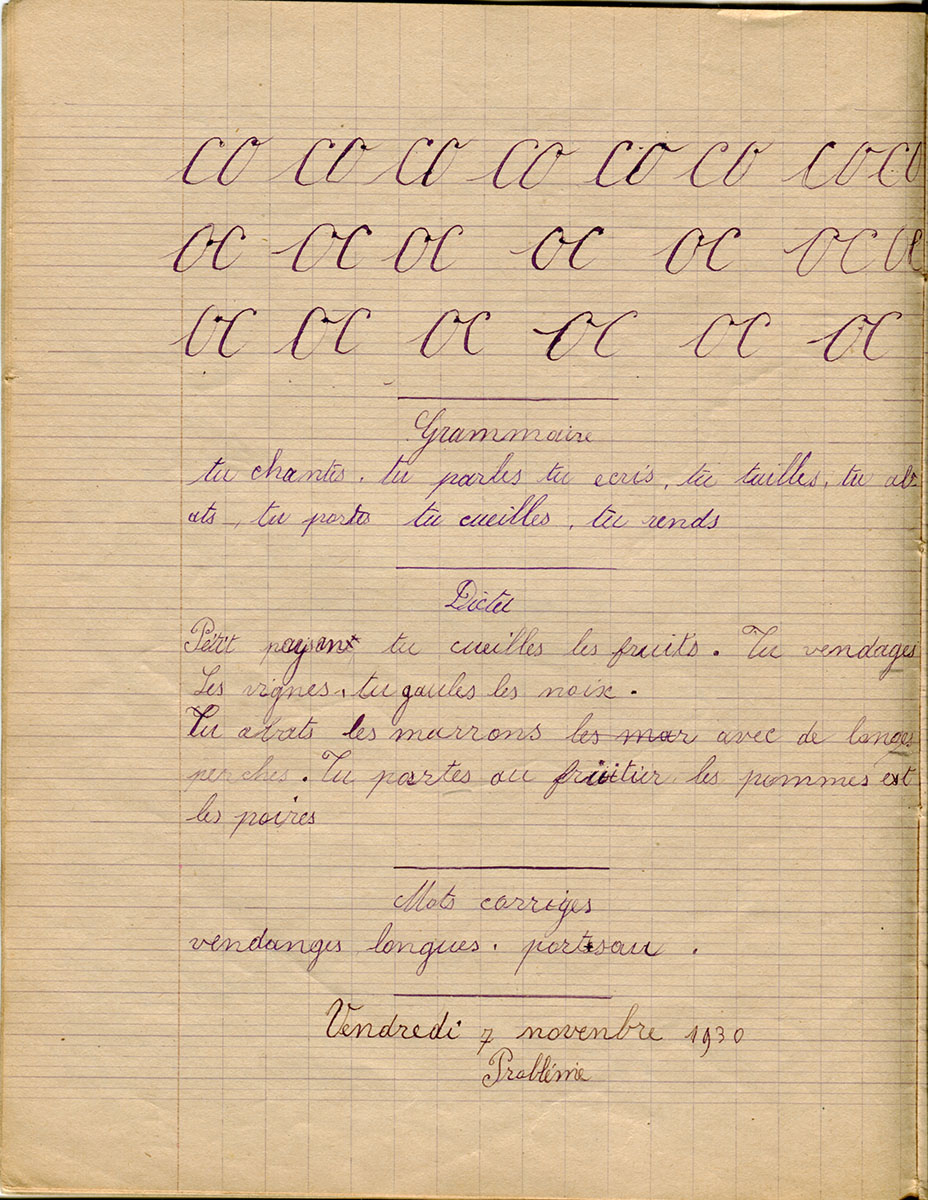 co co co co co co co co
oc oc oc oc oc oc oc
oc oc oc oc oc oc
Grammaire
tu chantes. tu parles tu ecris, tu tailles, tu ab-
ats, tu portes tu cueilles, tu rends
Dictee
Petit paysant tu cueilles les fruits. Tu vendages
Les vignes, tu gaules les noix.
Tu abats les marrons les mar avec de longes
perches. Tu portes au fruitier les pommes est
les poires
Mots corriges
vendanges longues. portes au.
Vendredi 7 novenbre 1930
Probléme